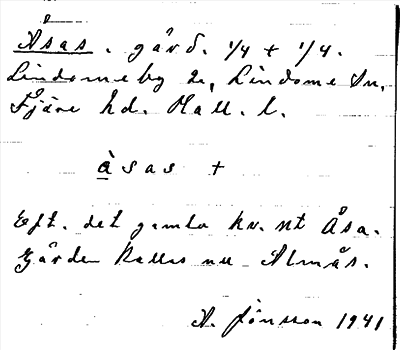 Åsas. gård. 1/4 + 1/4.
Lindome by 2, Lindome sn,
Fjäre hd. Hall. l.
àsas +
Eft. det gamla kv. nt Åsa.
Gården kallas nu Almås.
A. Jönsson 1941